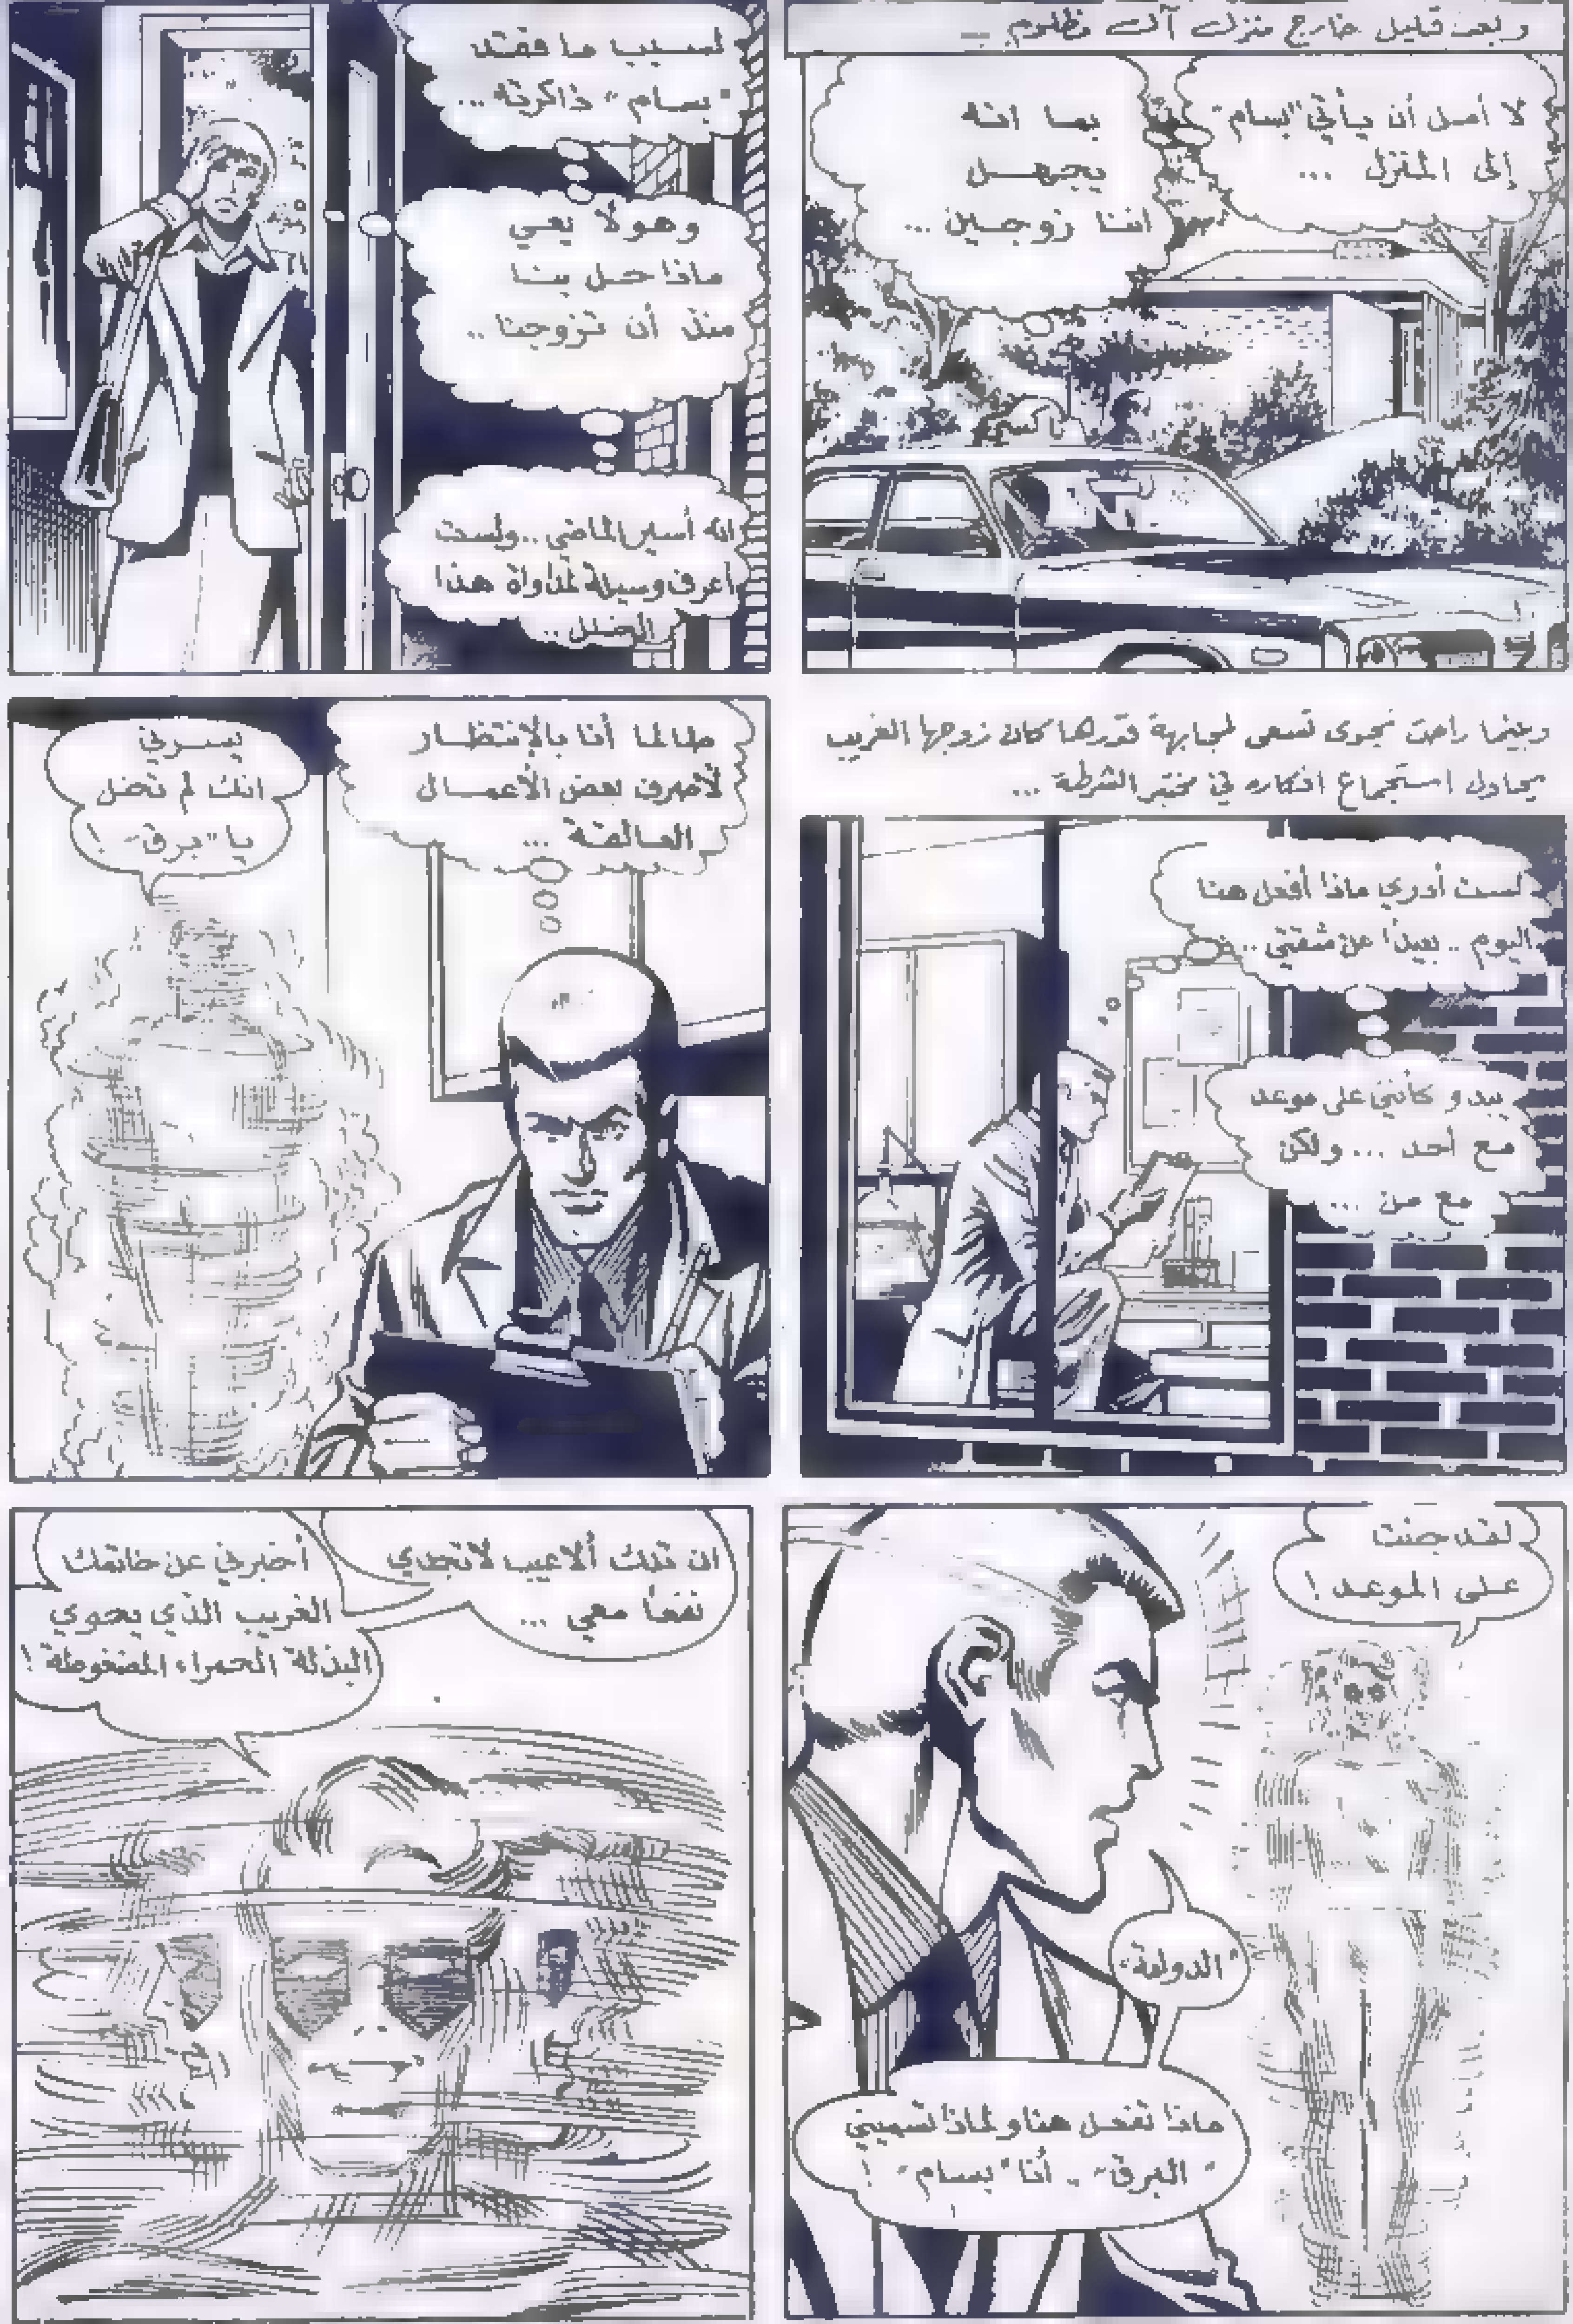 وبعد قليل خارج منزل آل مظلوم ..
لا أمل أن يأتي "بسام"
إلى المنزل ...
بما انه
يجهل
اننا زوجين ...
تاكسي
لسبب ما فقد
"بسام" ذاكرته ...
وهو لا يعي
ماذا حل بنا
منذ أن تزوجنا ..
انه أسير الماضي .. ولست
أعرف وسيلة لمداواة هذا
الخلل ..
وبينما راحت نجوى تسعى لمجابهة قدرها كان زوجها الغريب
يحاول استجماع افكاره في مختبر الشرطة ...
لست أدري ماذا أفعل هنا
اليوم .. بعيداً عن شقتي ..
يبدو كأنني على موعد
مع أحد ... ولكن
مع من ...
طالما أنا بالإنتظار
لأصرف بعض الأعمال
العالقة ...
يسرني
انك لم تخل
يا "برق" !
لقد جئت
على الموعد !
"الدولفة"
ماذا تفعل هنا ولماذا تسميني
"البرق" . أنا "بسام" !
ان تلك ألاعيب لا تجدي
نفعاً معي ...
أخبرني عن خاتمك
الغريب الذي يحوي
البذلة الحمراء المضغوطة !